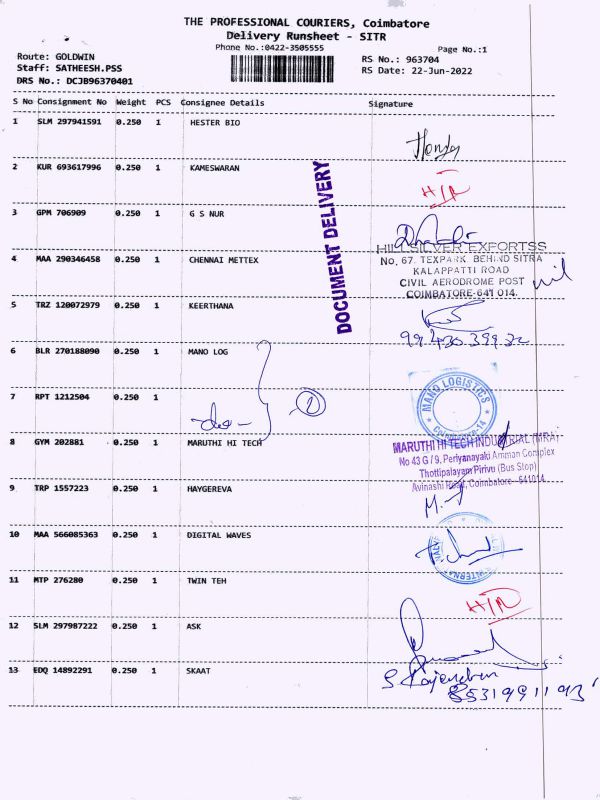 THE PROFESSIONAL COURIERS, Coimbatore
Delivery Runsheet - SITR
Phone No.:0422-3505555
Page No.:1
Route: GOLDWIN
RS No.: 963704
Staff: SATHEESH.PSS
RS Date: 22-Jun-2022
DRS No.: DCJB96370401
S No Consignment No Weight PCS Consignee Details Signature
1 SLM 297941591 0.250 1 HESTER BIO
2 KUR 693617996 0.250 1 KAMESWARAN
H/R
3 GPM 706909 0.250 1 G S NUR
DOCUMENT DELIVERY
HILLSILVER EXFORTSS
4 MAA 290346458 0.250 1 CHENNAI METTEX
No, 67, TEXPARK, BEHIND SITRA
KALAPPATTI ROAD
nil
CIVIL AERODROME POST
COIMBATORE-641 014.
5 TRZ 120072979 0.250 1 KEERTHANA
99430 399 22
6 BLR 270188090 0.250 1 MANO LOG
MANO LOGISTICS
Coimbatore-14
7 RPT 1212504 0.250 1
2
8 GYM 202881 0.250 1 MARUTHI HI TECH
MARUTHI HI TECH INDUSTRIAL (MRA)
No 43 G / 9, Periyanayaki Amman Complex
Thottipalayam Pirivu (Bus Stop)
Avinashi Road, Coimbatore - 641014
9 TRP 1557223 0.250 1 HAYGEREVA
10 MAA 566085363 0.250 1 DIGITAL WAVES
11 MTP 276280 0.250 1 TWIN TEH
H/R
12 SLM 297987222 0.250 1 ASK
13 EDQ 14892291 0.250 1 SKAAT
S Rajendran
8531991193